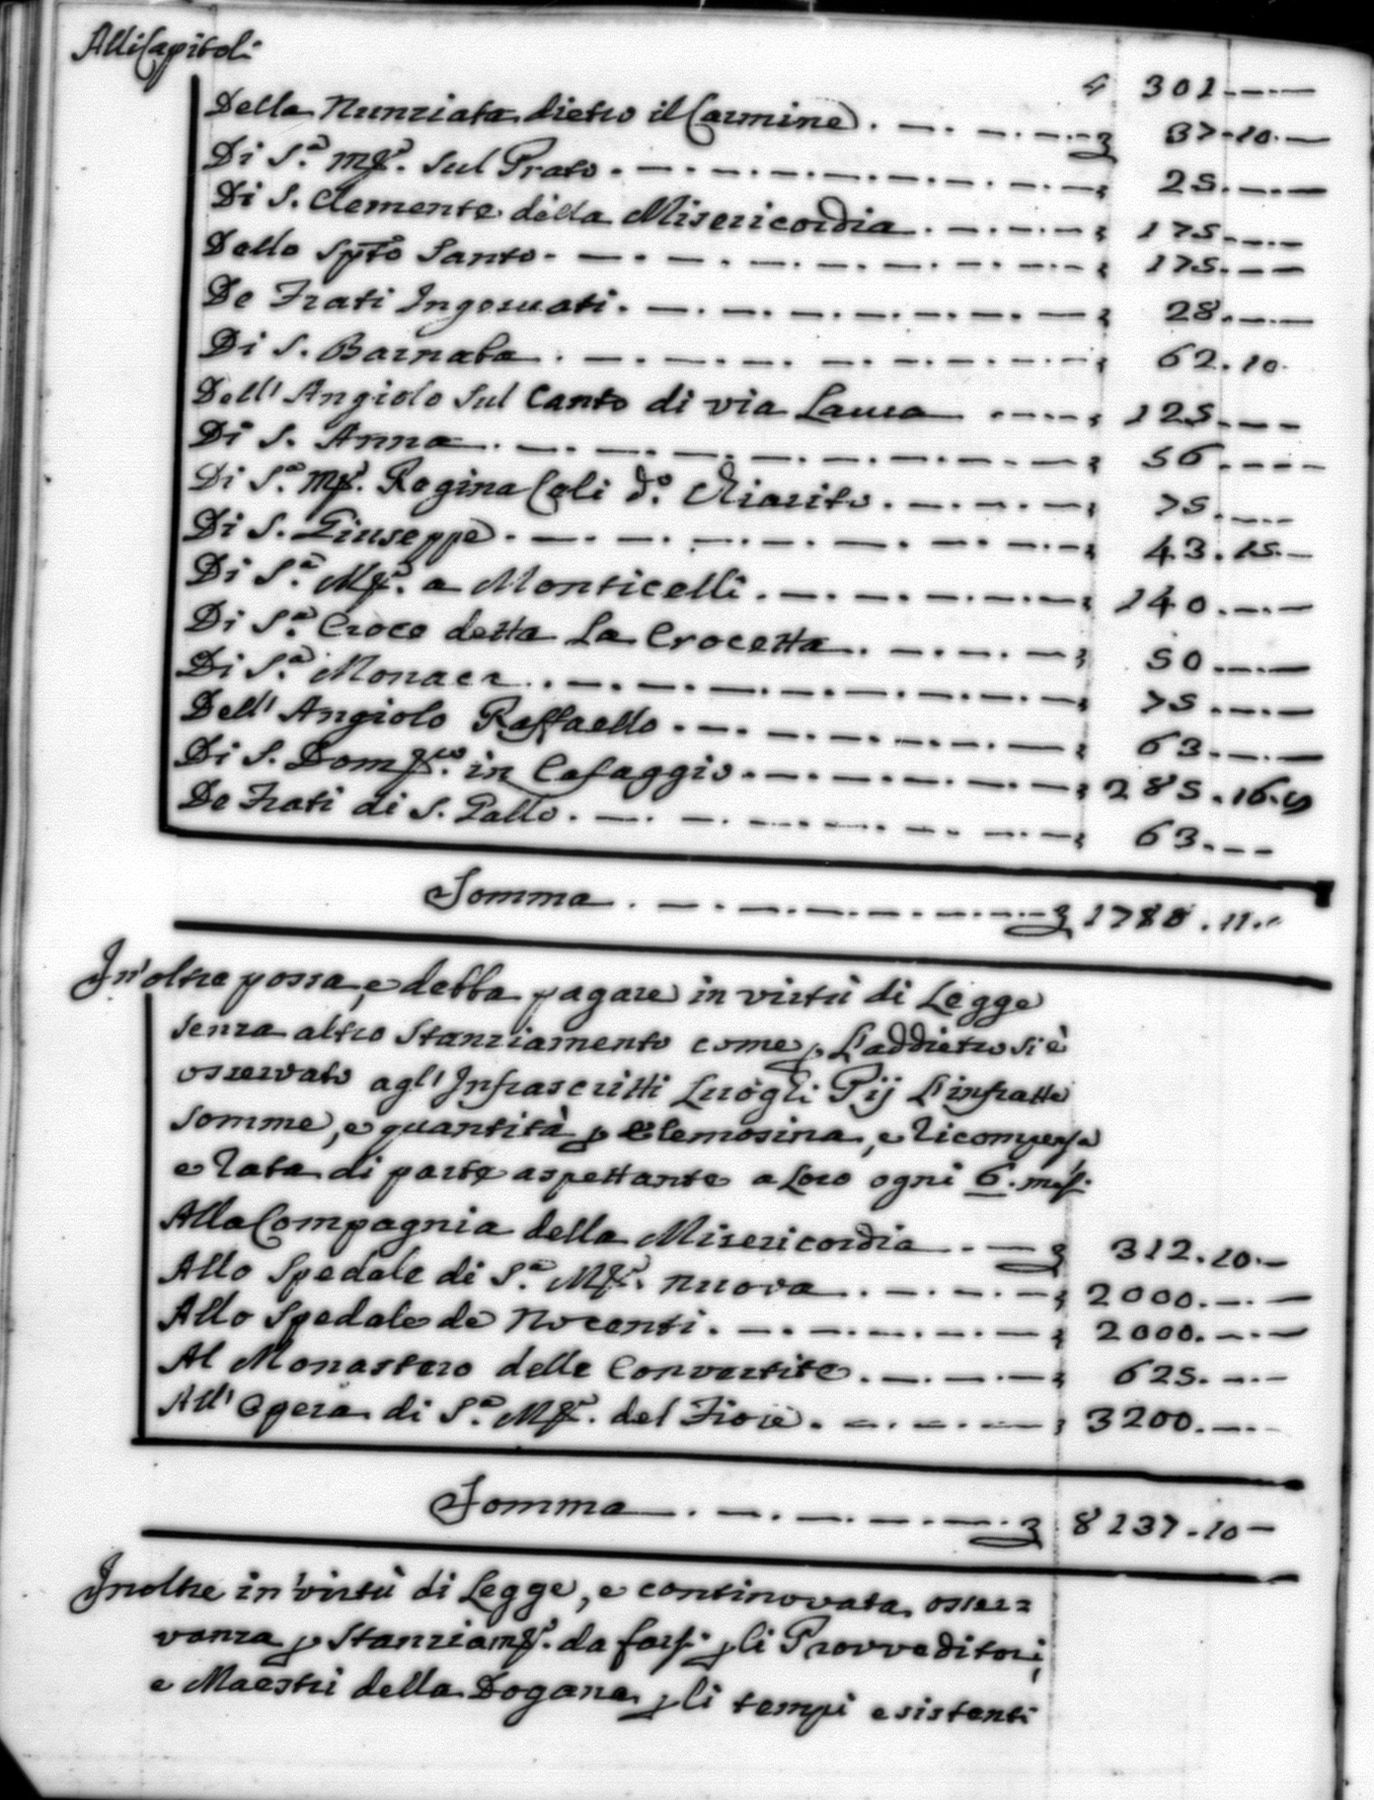 Alli Capitoli
301
Della Nunziata dietro il Carmine 37.10
Di S.ª Mª. sul Prato 25
Di S. Clemente della Misericordia 175
Dello Spto Santo 175
De Frati Ingesuati 28
Di S. Barnaba 62.10
Dell' Angiolo sul Canto di via Laura 125
Di S. Anna 56
Di S.ª Mª. Regina Celi d.º Chiarito 75
Di S. Giuseppe 43.15
Di S.ª Mª. a Monticelli 140
Di S.ª Croce detta La Crocetta 50
Di S.ª Monaca 75
Dell' Angiolo Raffaello 63
Di S. Dom.co in Cafaggio 285.16.
De Frati di S. Gallo 63
Somma 1780.11
In'oltre possa, e debba pagare in virtù di Legge
senza altro stanziamento come p. L'addietro si è
osservato agl' Infrascritti Luoghi Pij L'infratte
somme, e quantità p elemosina, e ricompensa
e rata di parte aspettante a Loro ogni 6. mesi.
Alla Compagnia della Misericordia 312.10
Allo Spedale di S.ª Mª. Nuova 2000
Allo Spedale de Nocenti 2000
Al Monastero delle Convertite 625
All' Opera di S.ª Mª. del Fiore 3200
Somma 8137.10
Inoltre in virtù di Legge, e continovata osser=
vanza p stanziamti. da farsi p li Provveditori,
e Maestri della Dogana p li tempi esistenti